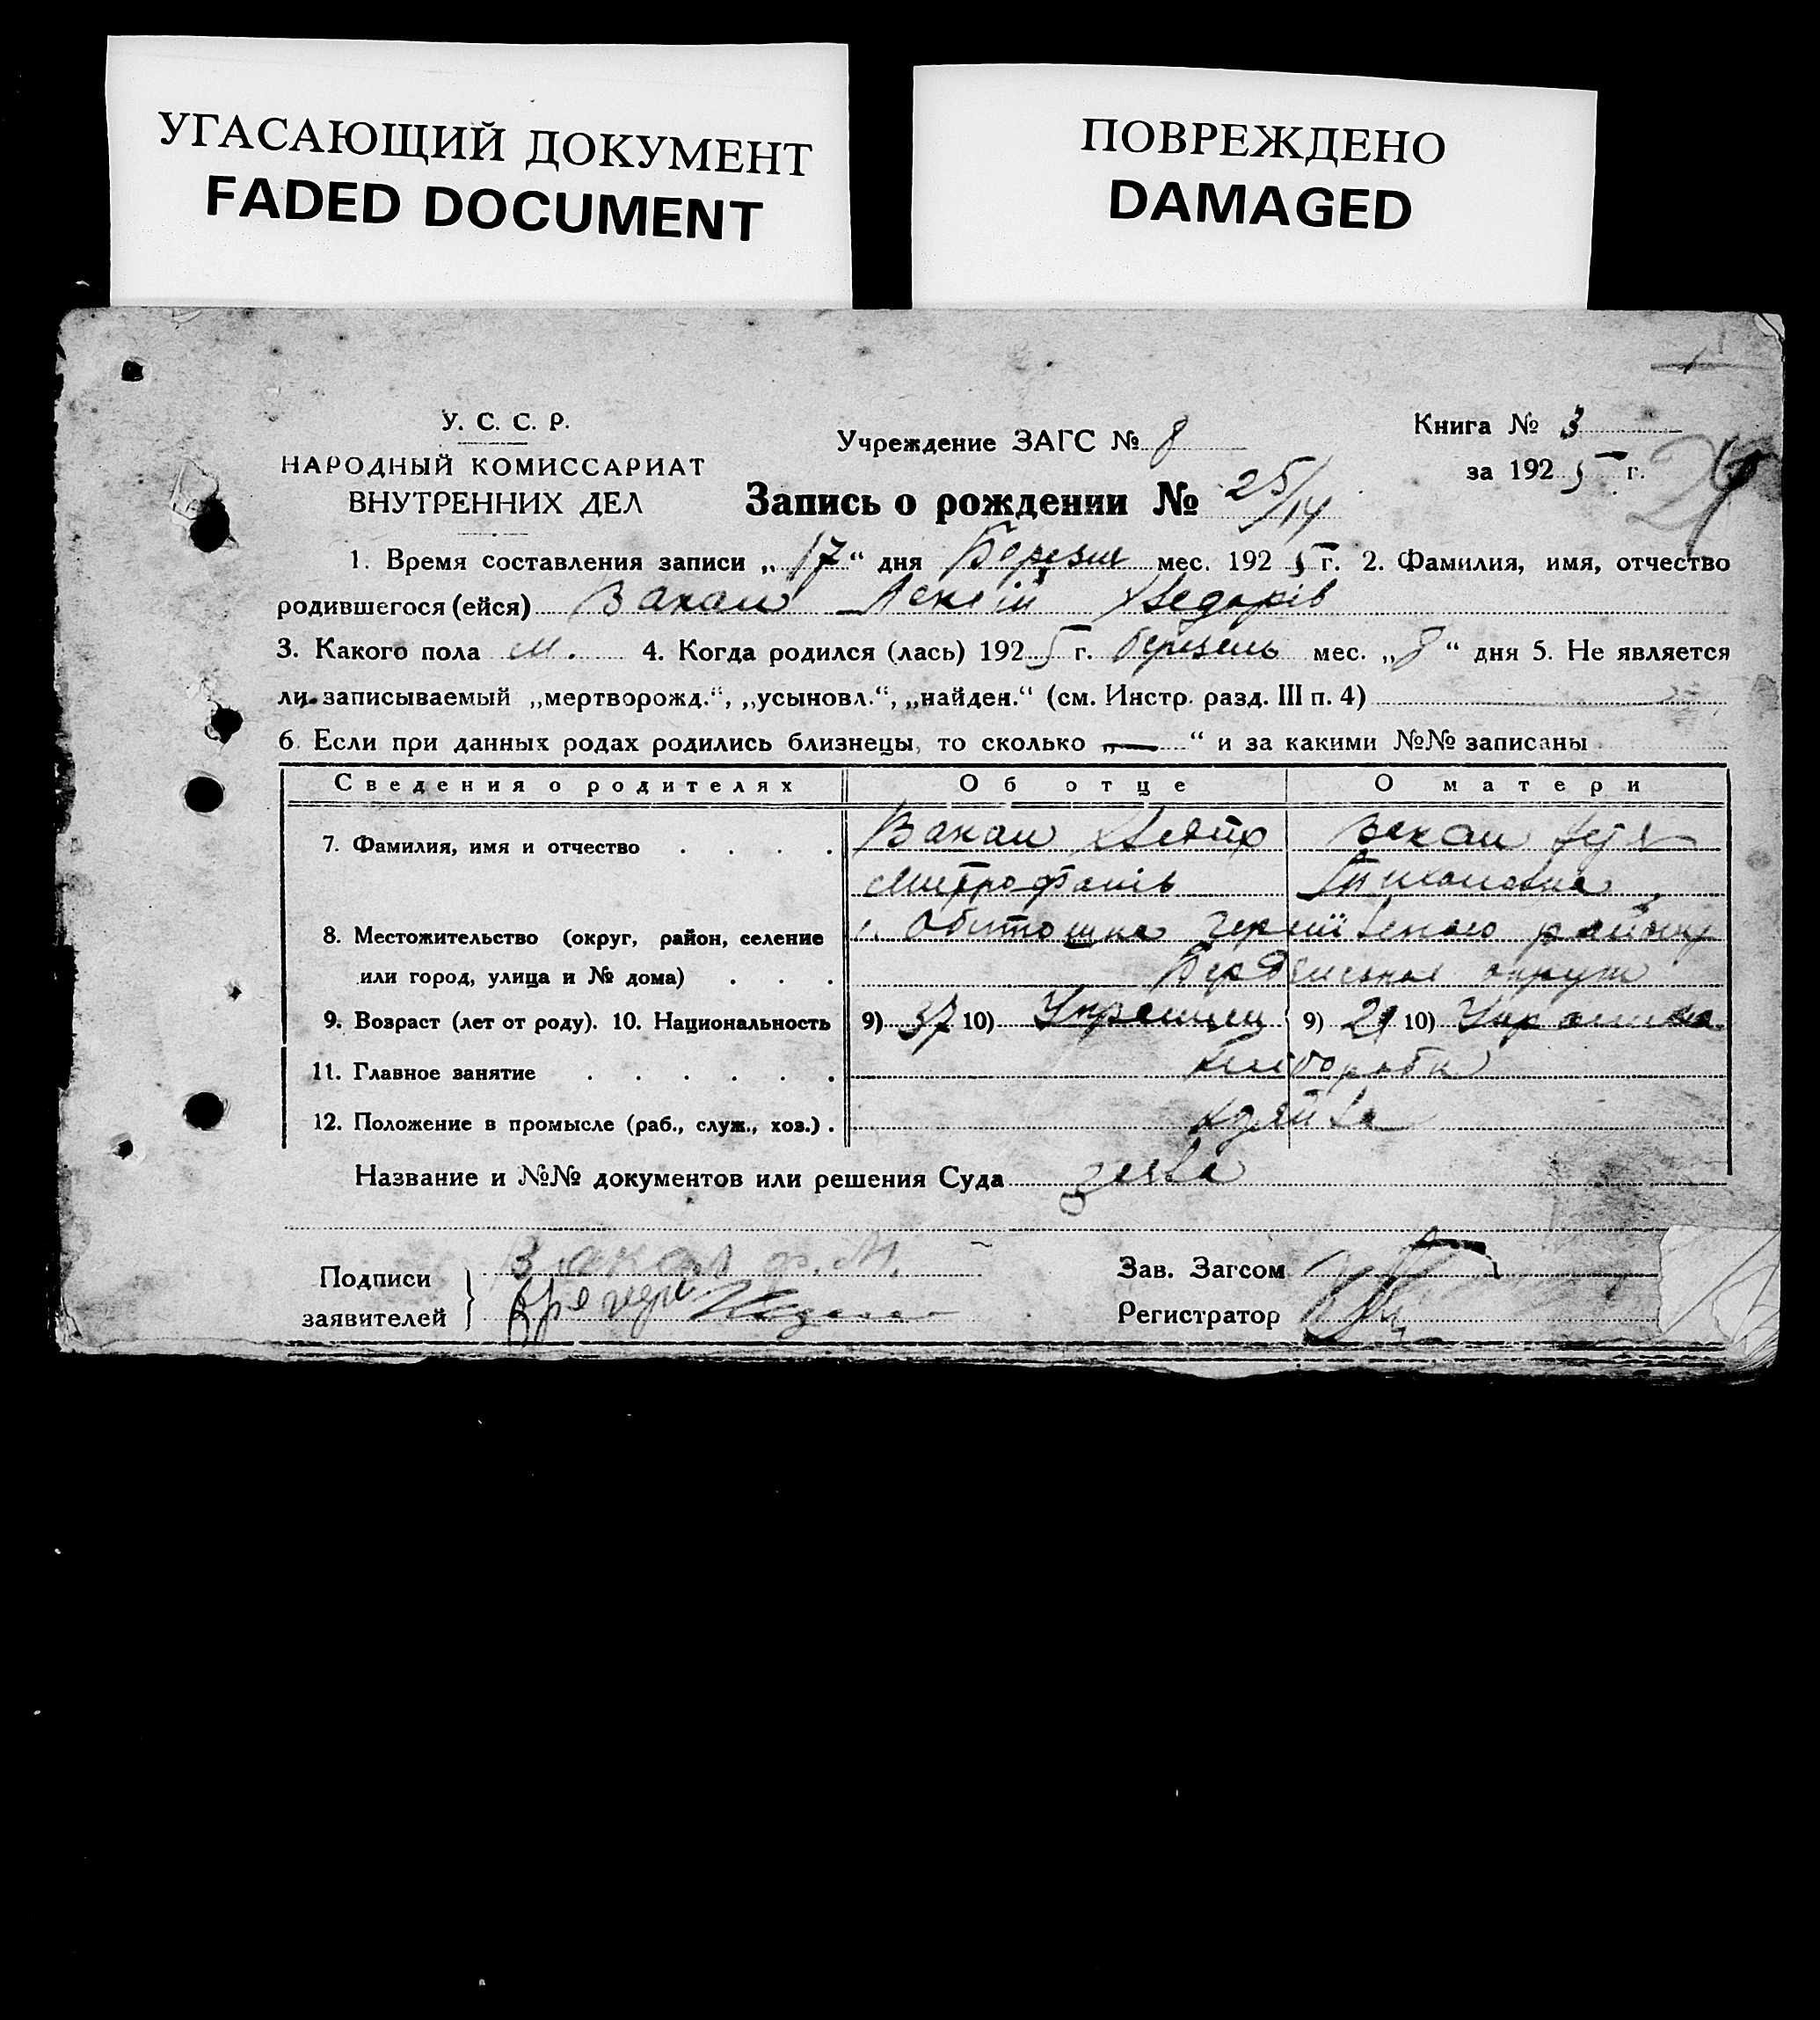 УГАСАЮЩИЙ ДОКУМЕНТ
FADED DOCUMENT
ПОВРЕЖДЕНО
DAMAGED
У. С. С. Р.
НАРОДНЫЙ КОМИССАРИАТ
ВНУТРЕННИХ ДЕЛ
Учреждение ЗАГС № 8
Книга № 3
за 1925 г.
Запись о рождении № 25/14
1. Время составления записи „17“ дня Березня мес. 1925 г. 2. Фамилия, имя, отчество
родившегося (ейся) Вакал
3. Какого пола м. 4. Когда родился (лась) 1925 г. березень мес. „8“ дня 5. Не является
ли записываемый „мертворожд.“, „усыновл.“, „найден.“ (см. Инстр. разд. III п. 4)
6. Если при данных родах родились близнецы, то сколько „—“ и за какими №№ записаны
Сведения о родителях Об отце О матери
7. Фамилия, имя и отчество Вакал Вакал
Митрофанів
8. Местожительство (округ, район, селение Обиточна району
или город, улица и № дома)
9. Возраст (лет от роду). 10. Национальность 9) 37 10) Українец 9) 29 10) Українка
11. Главное занятие хлібороби
12. Положение в промысле (раб., служ., хоз.) хазяйва
Название и №№ документов или решения Суда заява
Подписи Вакал Ф. М.
заявителей
Зав. Загсом
Регистратор